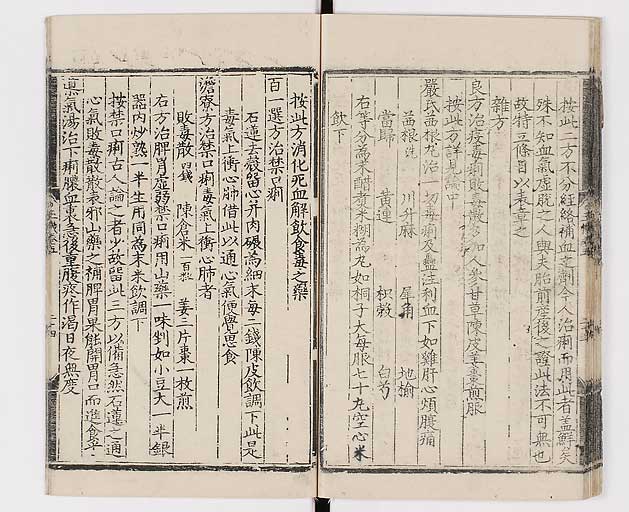 按此二方不分經絡補血之劑今人治痢而用此者蓋鮮矣
殊不知血氣虛脫之人與夫胎前產後之證此法不可無也
故特立條目以表章之
雜方
良方治疫毒痢敗毒散多加人參甘草陳皮姜棗煎服
按此方詳見論中
嚴氏茜根丸治一切毒痢及蠱注利血下如雞肝心煩腹痛
茜根洗 川升麻 犀角 地榆
當歸 黃連 枳殼 白芍
右等分為末醋煮米糊為丸如桐子大每服七十丸空心米
飲下
按此方消化死血解飲食毒之藥
百一選方治禁口痢
石蓮去殼留心并肉碾為細末每二錢陳皮飲調下此是
毒氣上衝心肺借此以通心氣便覺思食
澹寮方治禁口痢毒氣上衝心肺者
敗毒散四錢 陳倉米一百粒 姜三片棗一枚煎
右方治脾胃虛弱禁口痢用山藥一味剉如小豆大一半銀
器內炒熟一半生用同為末米飲調下
按禁口痢古人論之者少故留此三方以備急然石蓮之通
心氣敗毒散散表邪山藥之補脾胃果能開胃口而進食乎
真氣湯治下痢膿血裏急後重腹疼作渴日夜無度